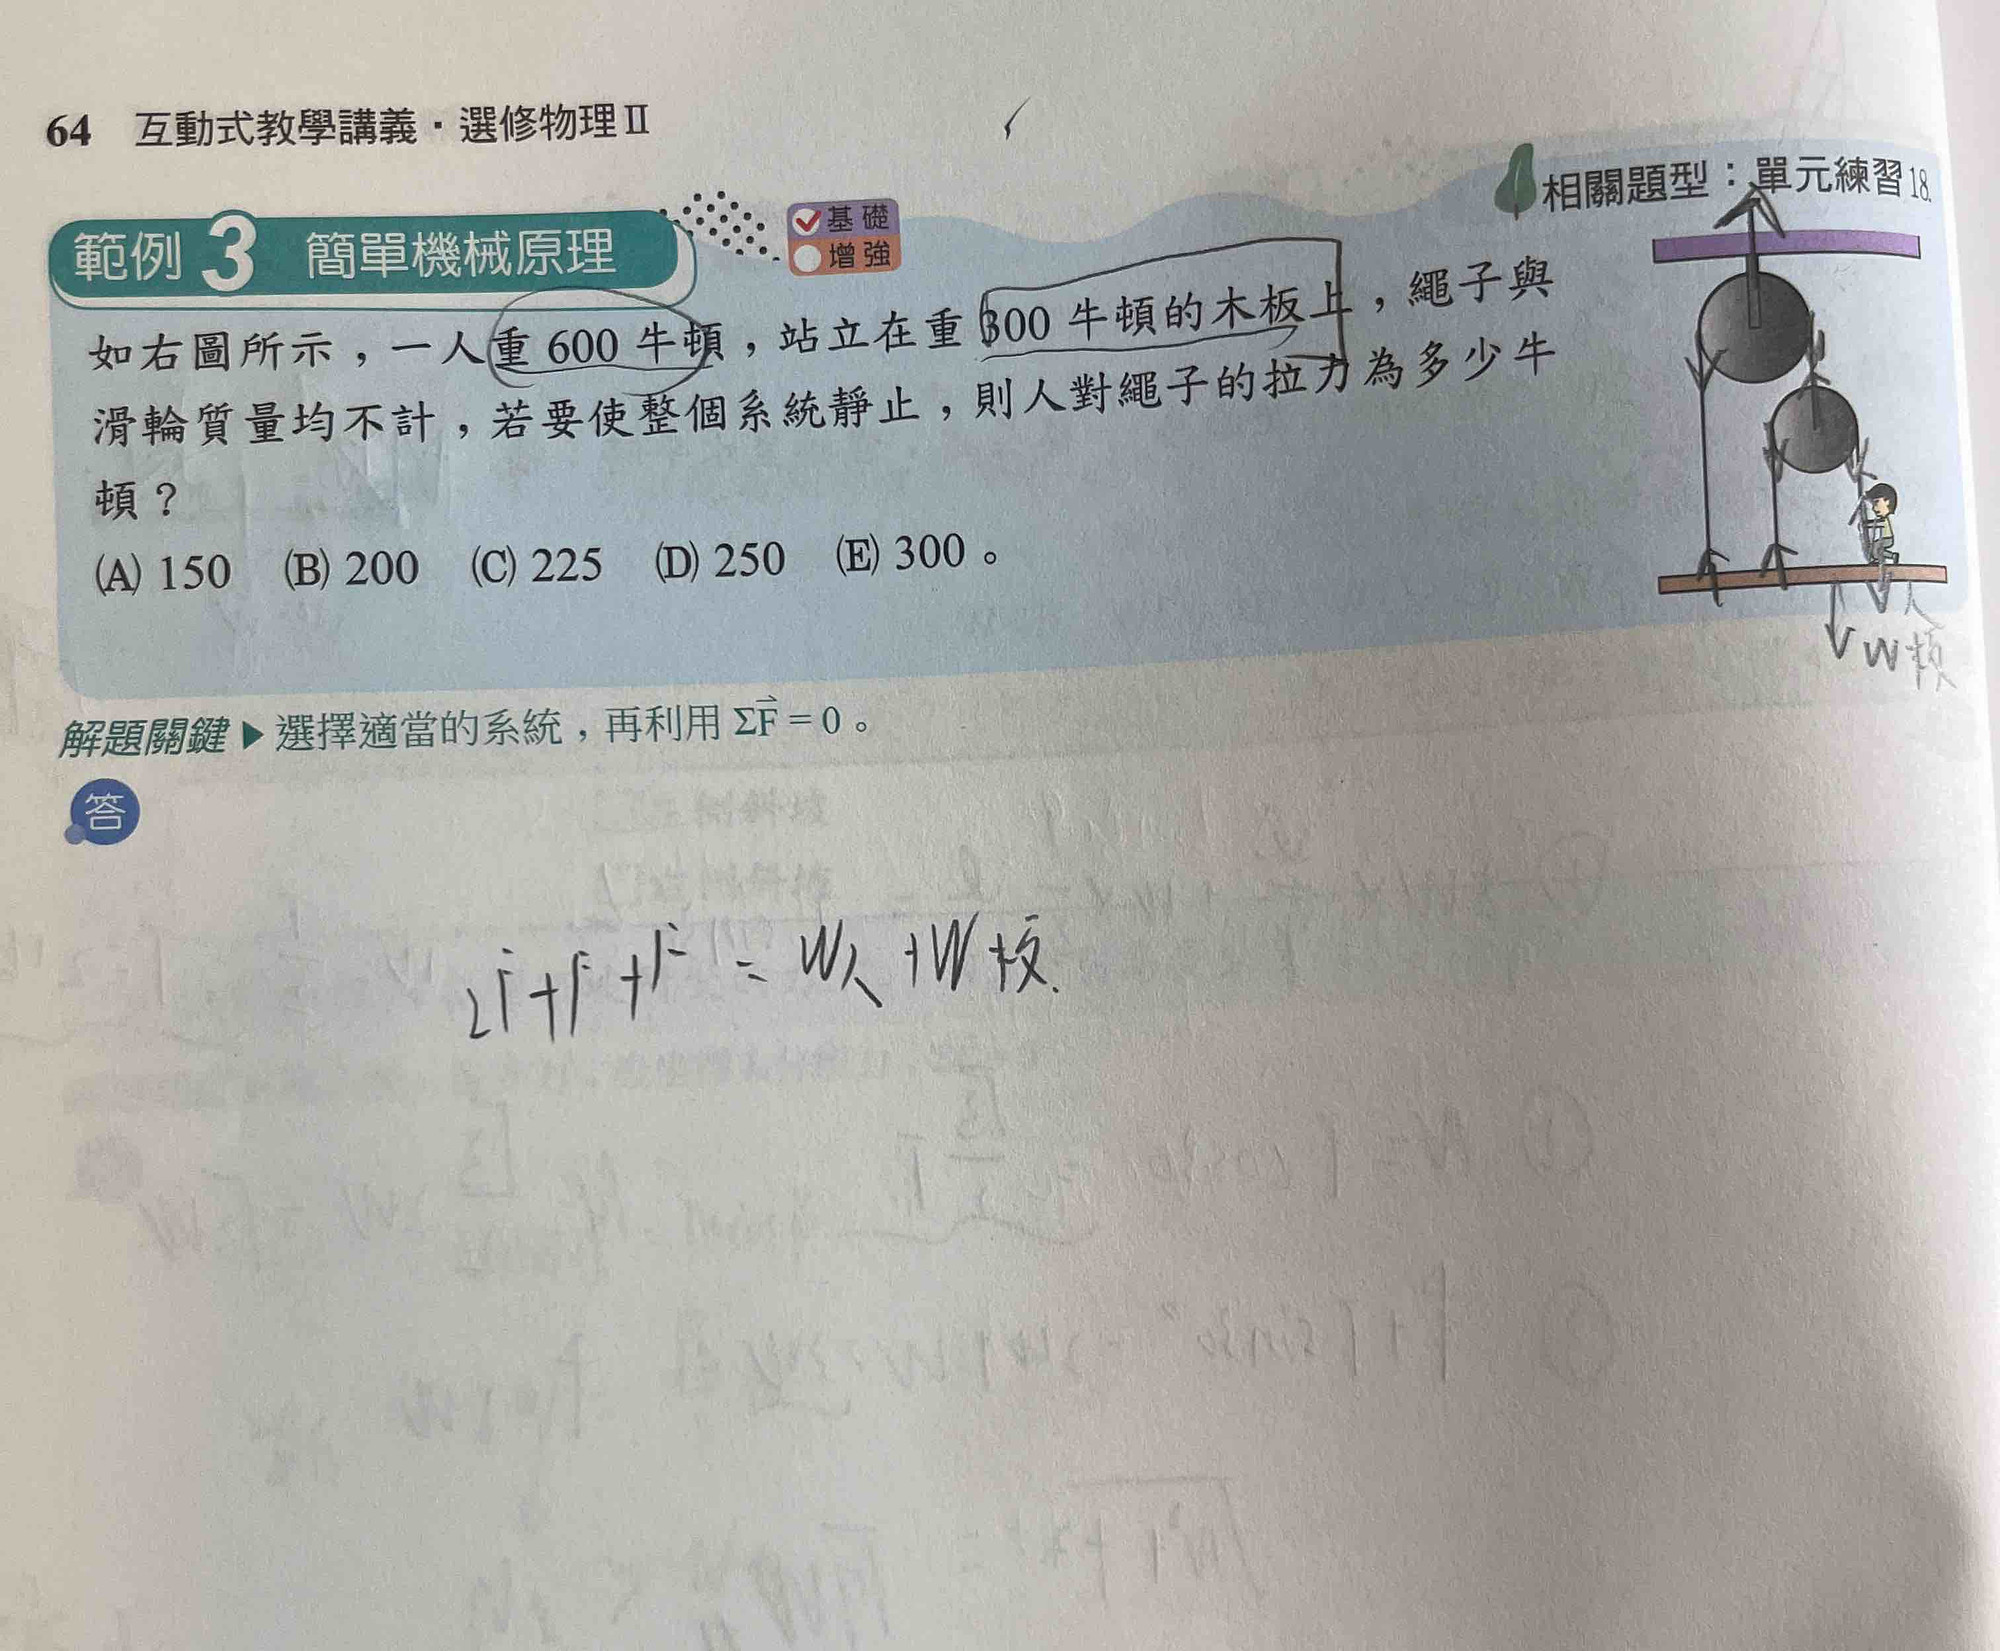 64 互動式教學講義·選修物理Ⅱ
相關題型：單元練習18.
範例3 簡單機械原理
基礎
增強
如右圖所示，一人重 600 牛頓，站立在重 300 牛頓的木板上，繩子與
滑輪質量均不計，若要使整個系統靜止，則人對繩子的拉力為多少牛
頓？
(A) 150 (B) 200 (C) 225 (D) 250 (E) 300。
W人
W板
解題關鍵▶選擇適當的系統，再利用 ΣF⃗ = 0。
答
2F+F+F = W人+W板.